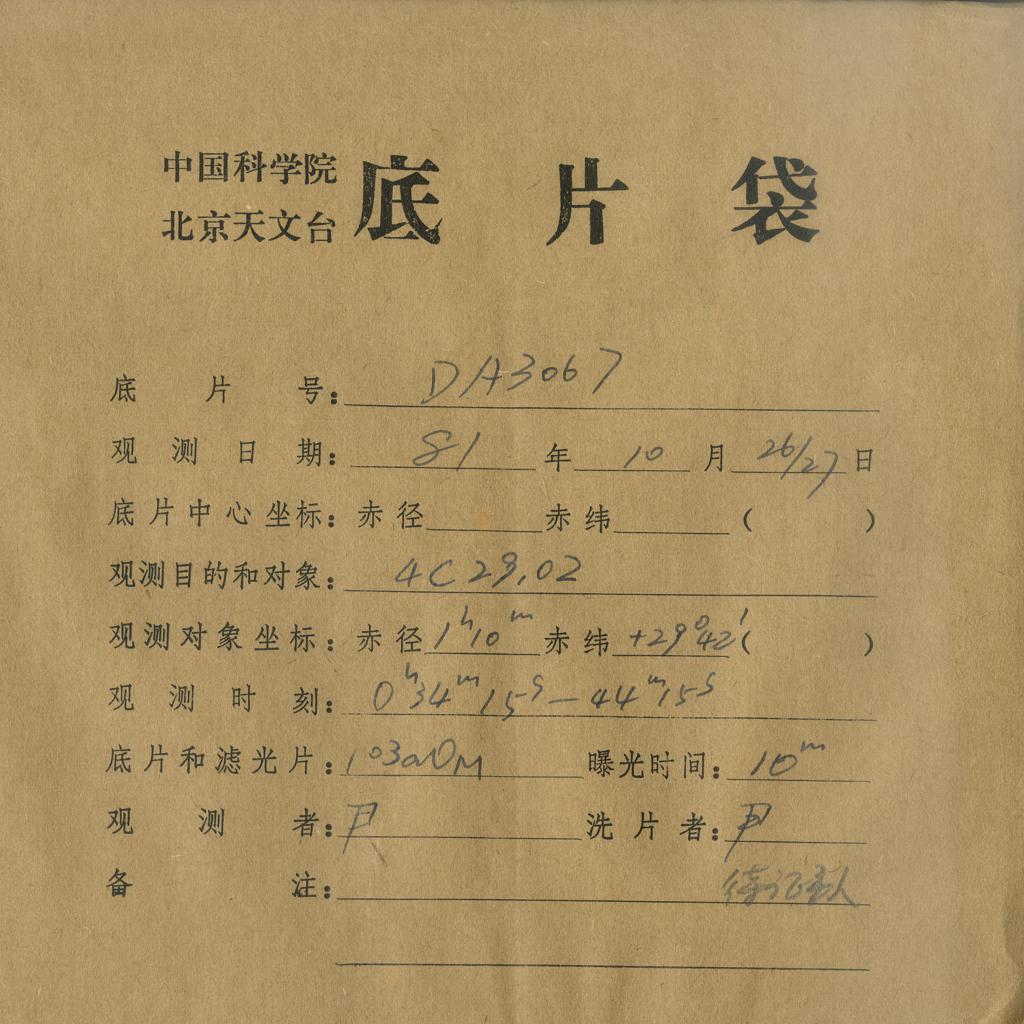 中国科学院
北京天文台
底片袋
底片号: DA3067
观测日期: 81年10月26/27日
底片中心坐标: 赤径 赤纬 ( )
观测目的和对象: 4C29.02
观测对象坐标: 赤径 1h10m 赤纬 +29°42′ ( )
观测时刻: 0h34m15s—44m15s
底片和滤光片: 103aO 曝光时间: 10m
观测者: 尹 洗片者: 尹
备注: